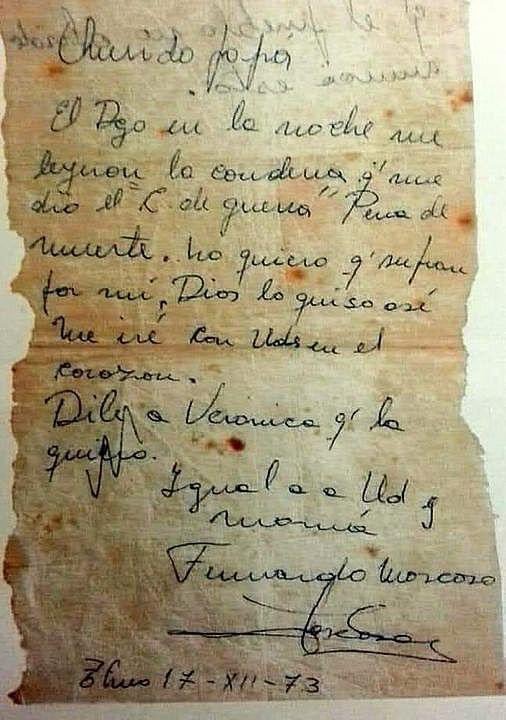 Querido papá
El Dgo en la noche me
leyeron la condena q' me
dio el "C. de guerra" Pena de
muerte. No quiero q' sufran
por mí, Dios lo quiso así
Me iré con Uds en el
corazon.
Dile a Veronica q' la
quiero.
Igual a a Ud y
mamá
Fernando Moscoso
17-XII-73